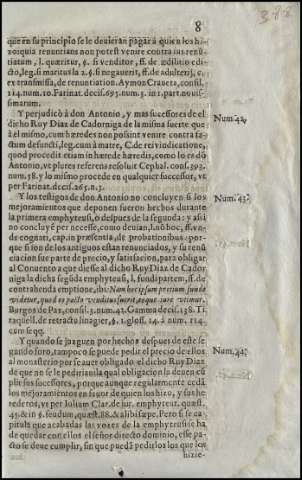 8
388
que en su principio se le deuieran pagar à quien los hi
zo: quia renuntians non potest venire contra ius renũ
tiatum, l. quæritur, §. si venditor, ff. de ædilitio edi-
cto, leg. si maritus la 2. §. si negauerit, ff. de adulterij, c.
ex transmissa, de renuntiation. Aymon Craueta, consil.
214. num. 10. Farinat. decis. 693. num. 3. in 1. part. nouis-
simarum.
Y perjudicò à don Antonio, y mas successores de el
dicho Ruy Diaz de Cadorniga de la misma suerte que
à el mismo, cum hæredes non possint venire contra fa-
ctum defuncti, leg. cum à matre, C. de rei vindicatione,
quod procedit etiam in hærede hæredis, como lo es dõ
Antonio, vt plures referens resoluit Cephal. cons. 393.
num. 58. y lo mismo procede en qualquier successor, vt
per Farinat. decis. 265. n. 3.
Num. 42.
Y los testigos de don Antonio no concluyen si los
mejoramientos que deponen fueron hechos durante
la primera emphyteusi, ò despues de la segunda: y assi
no concluyẽ per necesse, como deuian, l. nõ hoc, ff. vn-
de cognati, cap. in præsentia, de probationibus: por-
que si son de los antiguos estan renunciados, y su renũ
ciacion fue parte de precio, y satisfacion, para obligar
al Conuento a que diesse al dicho Ruy Diaz de Cador
niga la dicha segũda emphyteusi, l. fundi partem, ff. de
contrahenda emptione, ibi: Nam hoc ipsum pretium fundo
videtur, quod eo pacto venditus fuerit, eoque iure vtimur.
Burgos de Paz, consil. 3. num. 42. Gamma decis. 138. Ti-
raquell. de retractu linagier, §. 1. gloss. 14. à num. 114.
cum seqq.
Num. 43.
Y quando se juzguen por hechos despues de este se-
gundo foro, tampoco se puede pedir el precio de ellos
al monasterio por se auer obligado el dicho Ruy Diaz
de que no se le pediria nila qual obligacion la deuen cũ
plir sus successores, porque aunque regularmente ceda
los mejoramientos en fauor de quien los hizo, y sus he
rederos, vt per Iulium Clar. de iur. emphyteut. quæst.
45. & in §. feudum, quæst. 88. & alibi sæpe. Pero si se ca-
pitula que acabadas las vozes de la emphyteusis se ha
de quedar con ellos el señor directo dominio, esse pa-
cto se deue cumplir, sin que puedã pedirlos los que los
hizie-
Num. 44.